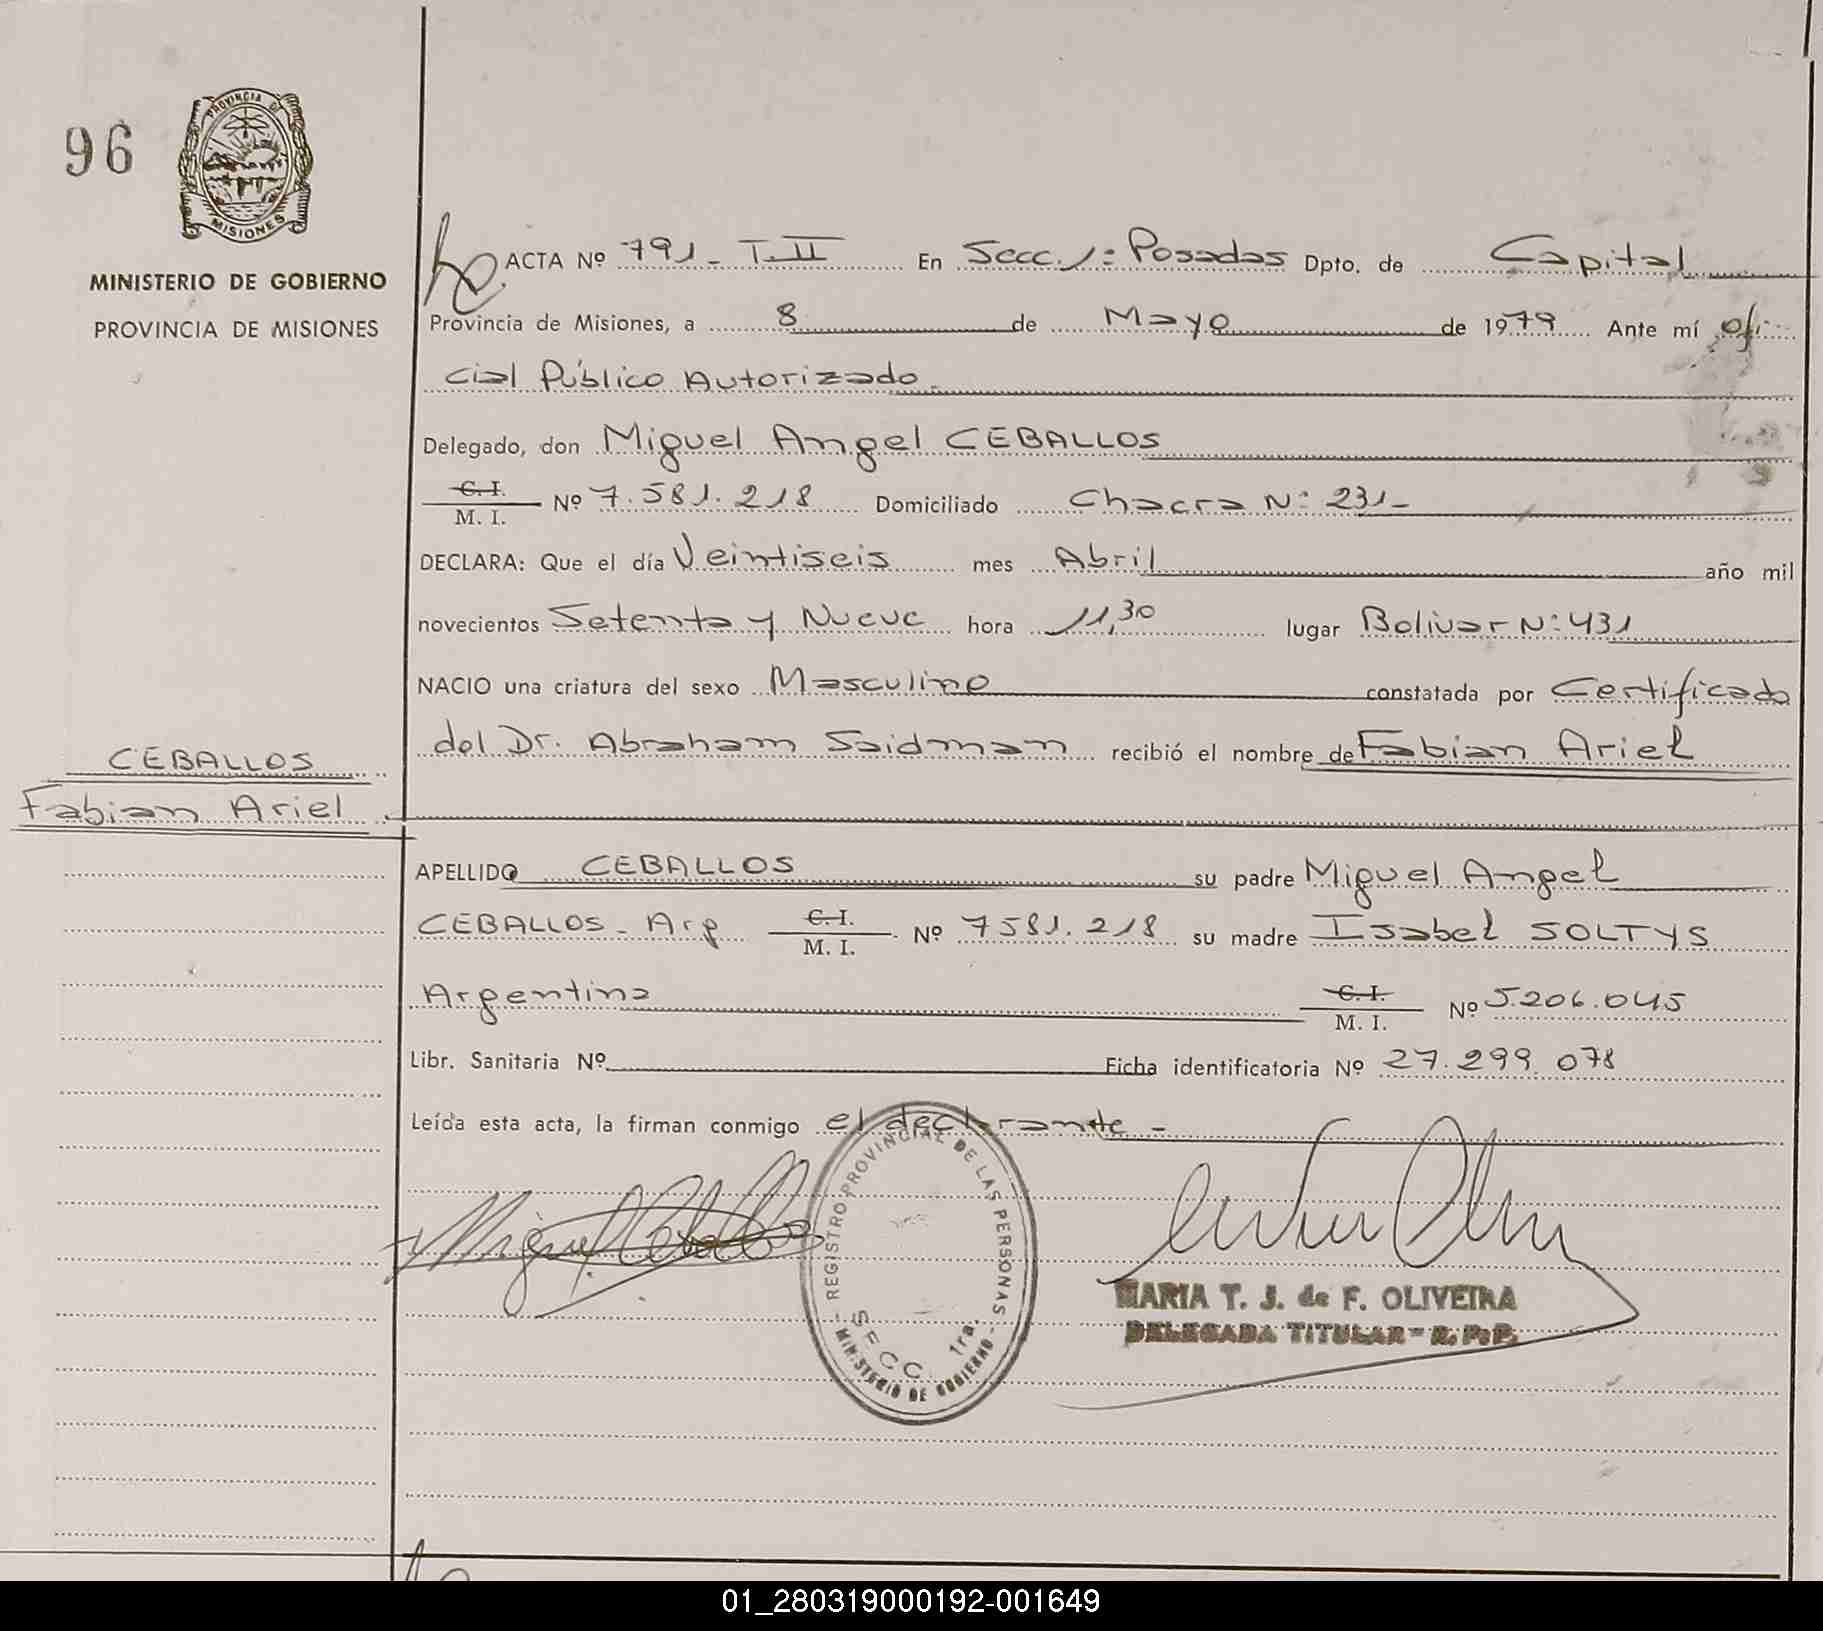 96
PROVINCIA DE
MISIONES
MINISTERIO DE GOBIERNO
PROVINCIA DE MISIONES
ACTA Nº 791 - T. II En Secc. 1: Posadas Dpto. de Capital
Provincia de Misiones, a 8 de Mayo de 1979 Ante mí ofi
cial Público Autorizado.
Delegado, don Miguel Angel CEBALLOS
C. I.
M. I. Nº 7.581.218 Domiciliado Chacra N: 231-
DECLARA: Que el día Veintiseis mes Abril año mil
novecientos Setenta y Nueve hora 11,30 lugar Bolivar N: 431
NACIO una criatura del sexo Masculino constatada por Certificado
del Dr. Abraham Saidman recibió el nombre de Fabian Ariel
CEBALLOS
Fabian Ariel
APELLIDO CEBALLOS su padre Miguel Angel
CEBALLOS - Arg C. I.
M. I. Nº 7581.218 su madre Isabel SOLTYS
Argentina C. I.
M. I. Nº 5.206.045
Libr. Sanitaria Nº Ficha identificatoria Nº 27.299.078
Leída esta acta, la firman conmigo el declarante -
Miguel Ceballos
REGISTRO PROVINCIAL DE LAS PERSONAS
SECC. 1ra.
- MINISTERIO DE GOBIERNO -
MARIA T. J. de F. OLIVEIRA
DELEGADA TITULAR - R. P. P.
01_280319000192-001649